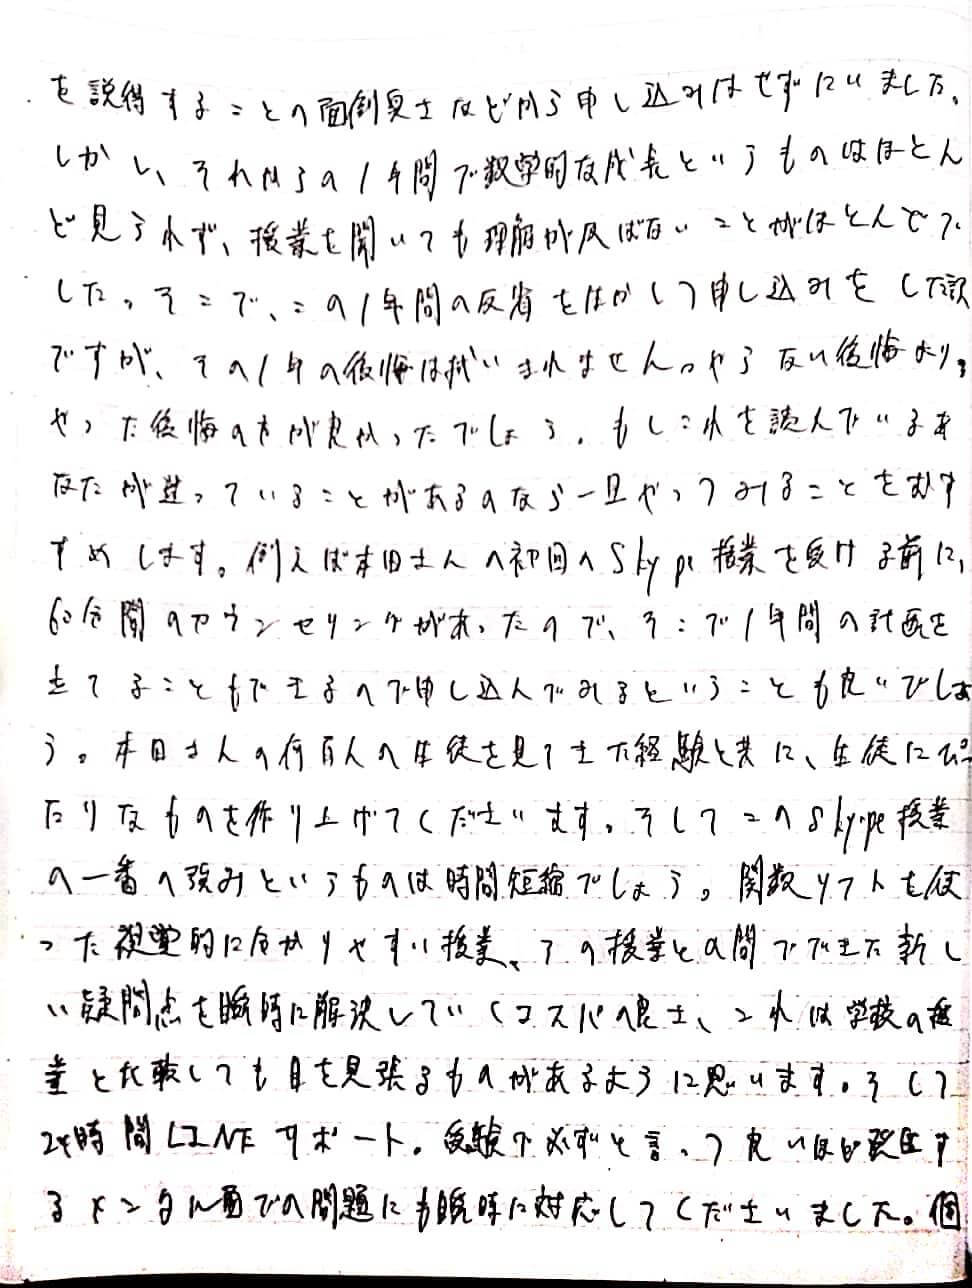 を説得することの面倒臭さなどから申し込みはせずにいました。
しかし、それからの1年間で数学的な成長というものはほとん
ど見られず、授業を聞いても理解が及ばないことがほとんどで
した。そこで、この1年間の反省をいかして申し込みをした訳
ですが、その1年の後悔は拭いきれません。やらない後悔より、
やった後悔の方が良かったでしょう。もしこれを読んでいるあ
なたが迷っていることがあるのなら一旦やってみることをおす
すめします。例えば本田さんの初回のSkype授業を受ける前に、
60分間のカウンセリングがあったので、そこで1年間の計画を
立てることもできるので申し込んでみるということも良いでしょ
う。本田さんの何百人の生徒を見てきた経験と共に、生徒にぴっ
たりなものを作り上げてくださいます。そしてこのSkype授業
の一番の強みというものは時間短縮でしょう。関数ソフトを使
った視覚的に分かりやすい授業、その授業との間でできた新し
い疑問点を瞬時に解決していくコスパの良さ、これは学校の授
業と比較しても目を見張るものがあるように思います。そして
24時間LINEサポート。受験で必ずと言って良いほど発生す
るメンタル面での問題にも瞬時に対応してくださいました。個